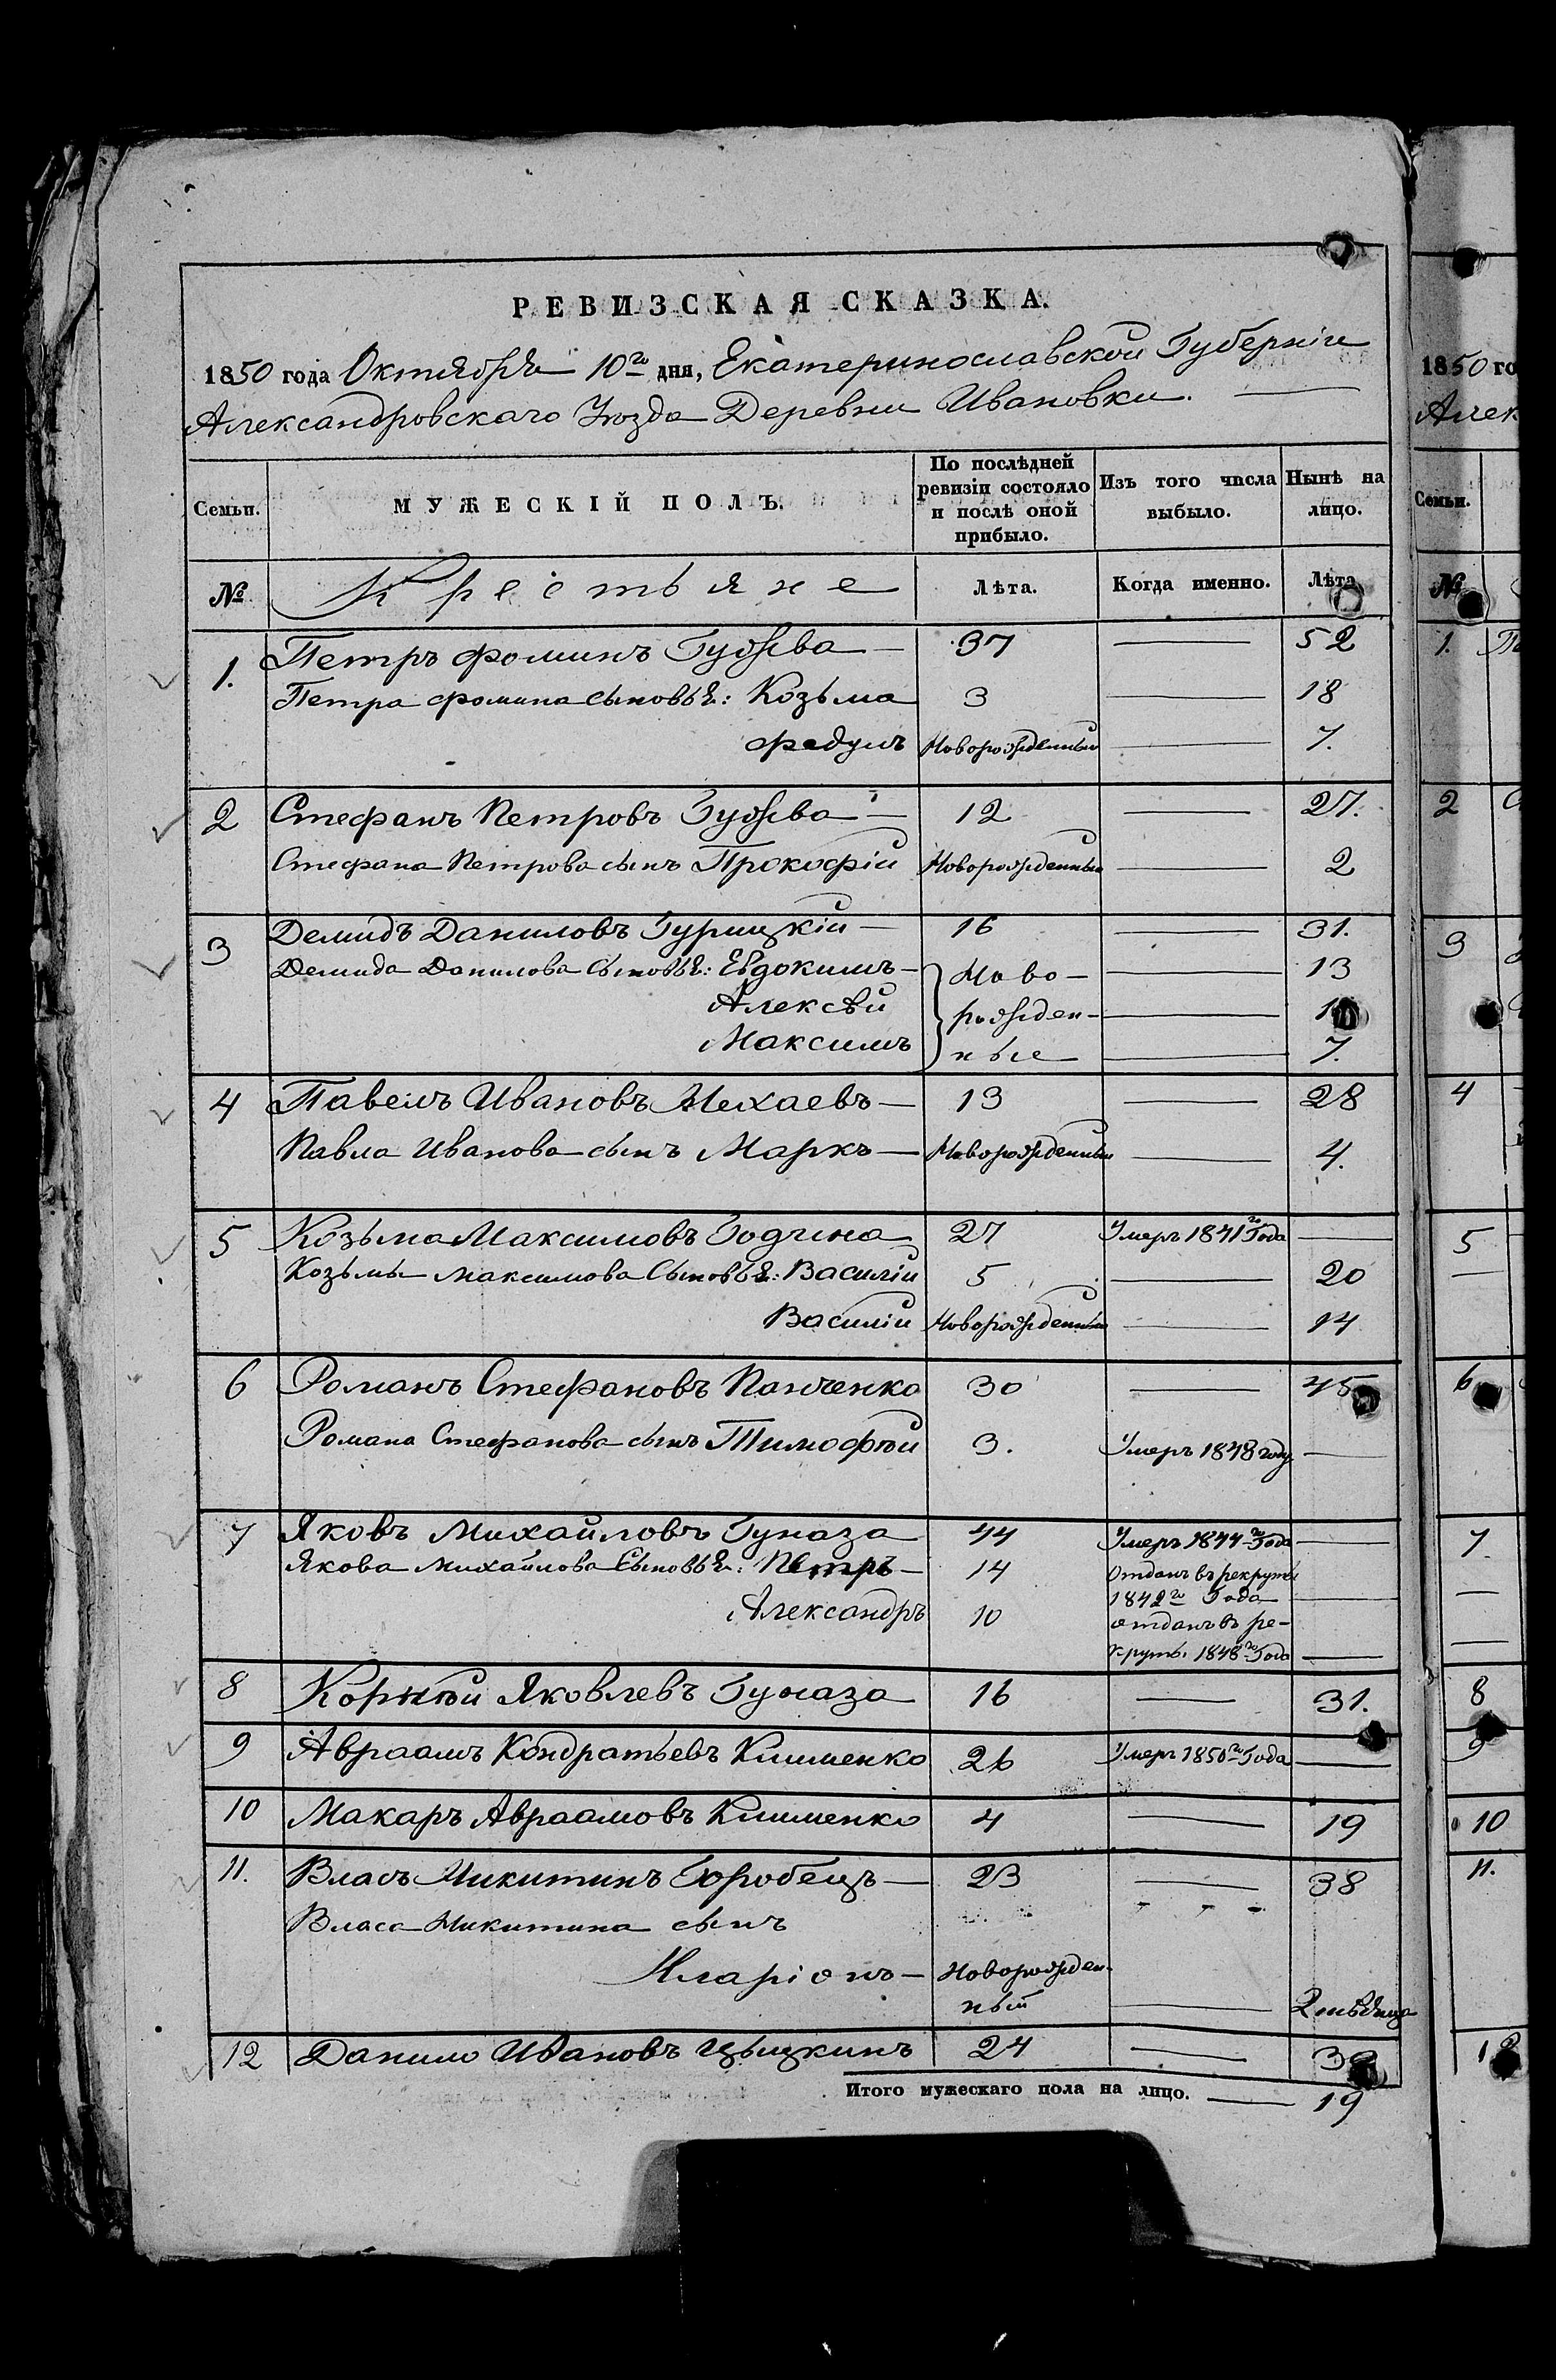 РЕВИЗСКАЯ СКАЗКА.
1850 года Октября 10го дня, Екатеринославской Губерніи
Александровскаго Уѣзда Деревни Ивановки.
Семьи.
МУЖЕСКІЙ ПОЛЪ.
По послѣдней ревизіи состояло и послѣ оной прибыло.
Изъ того числа выбыло.
Нынѣ на лицо.
№ Крестьяне Лѣта. Когда именно. Лѣта
1. Петръ Фоминъ 37 — 52
Петра Фомина сыновья: Козьма 3 — 18
Федулъ Новорожденный — 7.
2 Стефанъ Петровъ — 12 — 27.
Стефана Петрова сынъ Прокофій Новорожденный — 2
3 Демидъ Даниловъ Гурицкій — 16 — 31.
Демида Данилова Сыновья: Евдокимъ — Ново- — 13
Алексѣй рожден- —
Максимъ ные — 7.
4 Павелъ Ивановъ Мехаевъ — 13 — 28
Павла Иванова сынъ Маркъ — Новорожденный — 4.
5 Козьма Максимовъ Годчина 27 Умеръ 1841го Года —
Козьмы Максимова Сыновья: Василій 5 — 20
Василій Новорожденный — 14
6 Романъ Стефановъ Панченко 30 — 45
Романа Стефанова сынъ Тимофѣй 3. Умеръ 1848 году —
7 Яковъ Михайловъ Гуназа 44 Умеръ 1844го Года —
Якова Михайлова Сыновья: Петръ — 14 Отданъ въ рекруты
1842го Года —
Александръ 10 отданъ въ ре-
круты. 1848го Года —
8 Корнѣй Яковлевъ Гуназа 16 — 31.
9 Авраамъ Кондратьевъ Клименко 26 Умеръ 1850го Года —
10 Макаръ Авраамовъ Клименко 4 — 19
11. Власъ Никитинъ — 23 — 38
Власа Никитина сынъ
Иларіонъ — Новорожден-
ный — 2 мѣсяца
12 Данило Ивановъ Цыцкинъ 24 —
Итого мужескаго пола на лицо. — 19
1850 го
Алек
Семьи.
№
1.
2
3
4
5
6
7
8
9
10
11.